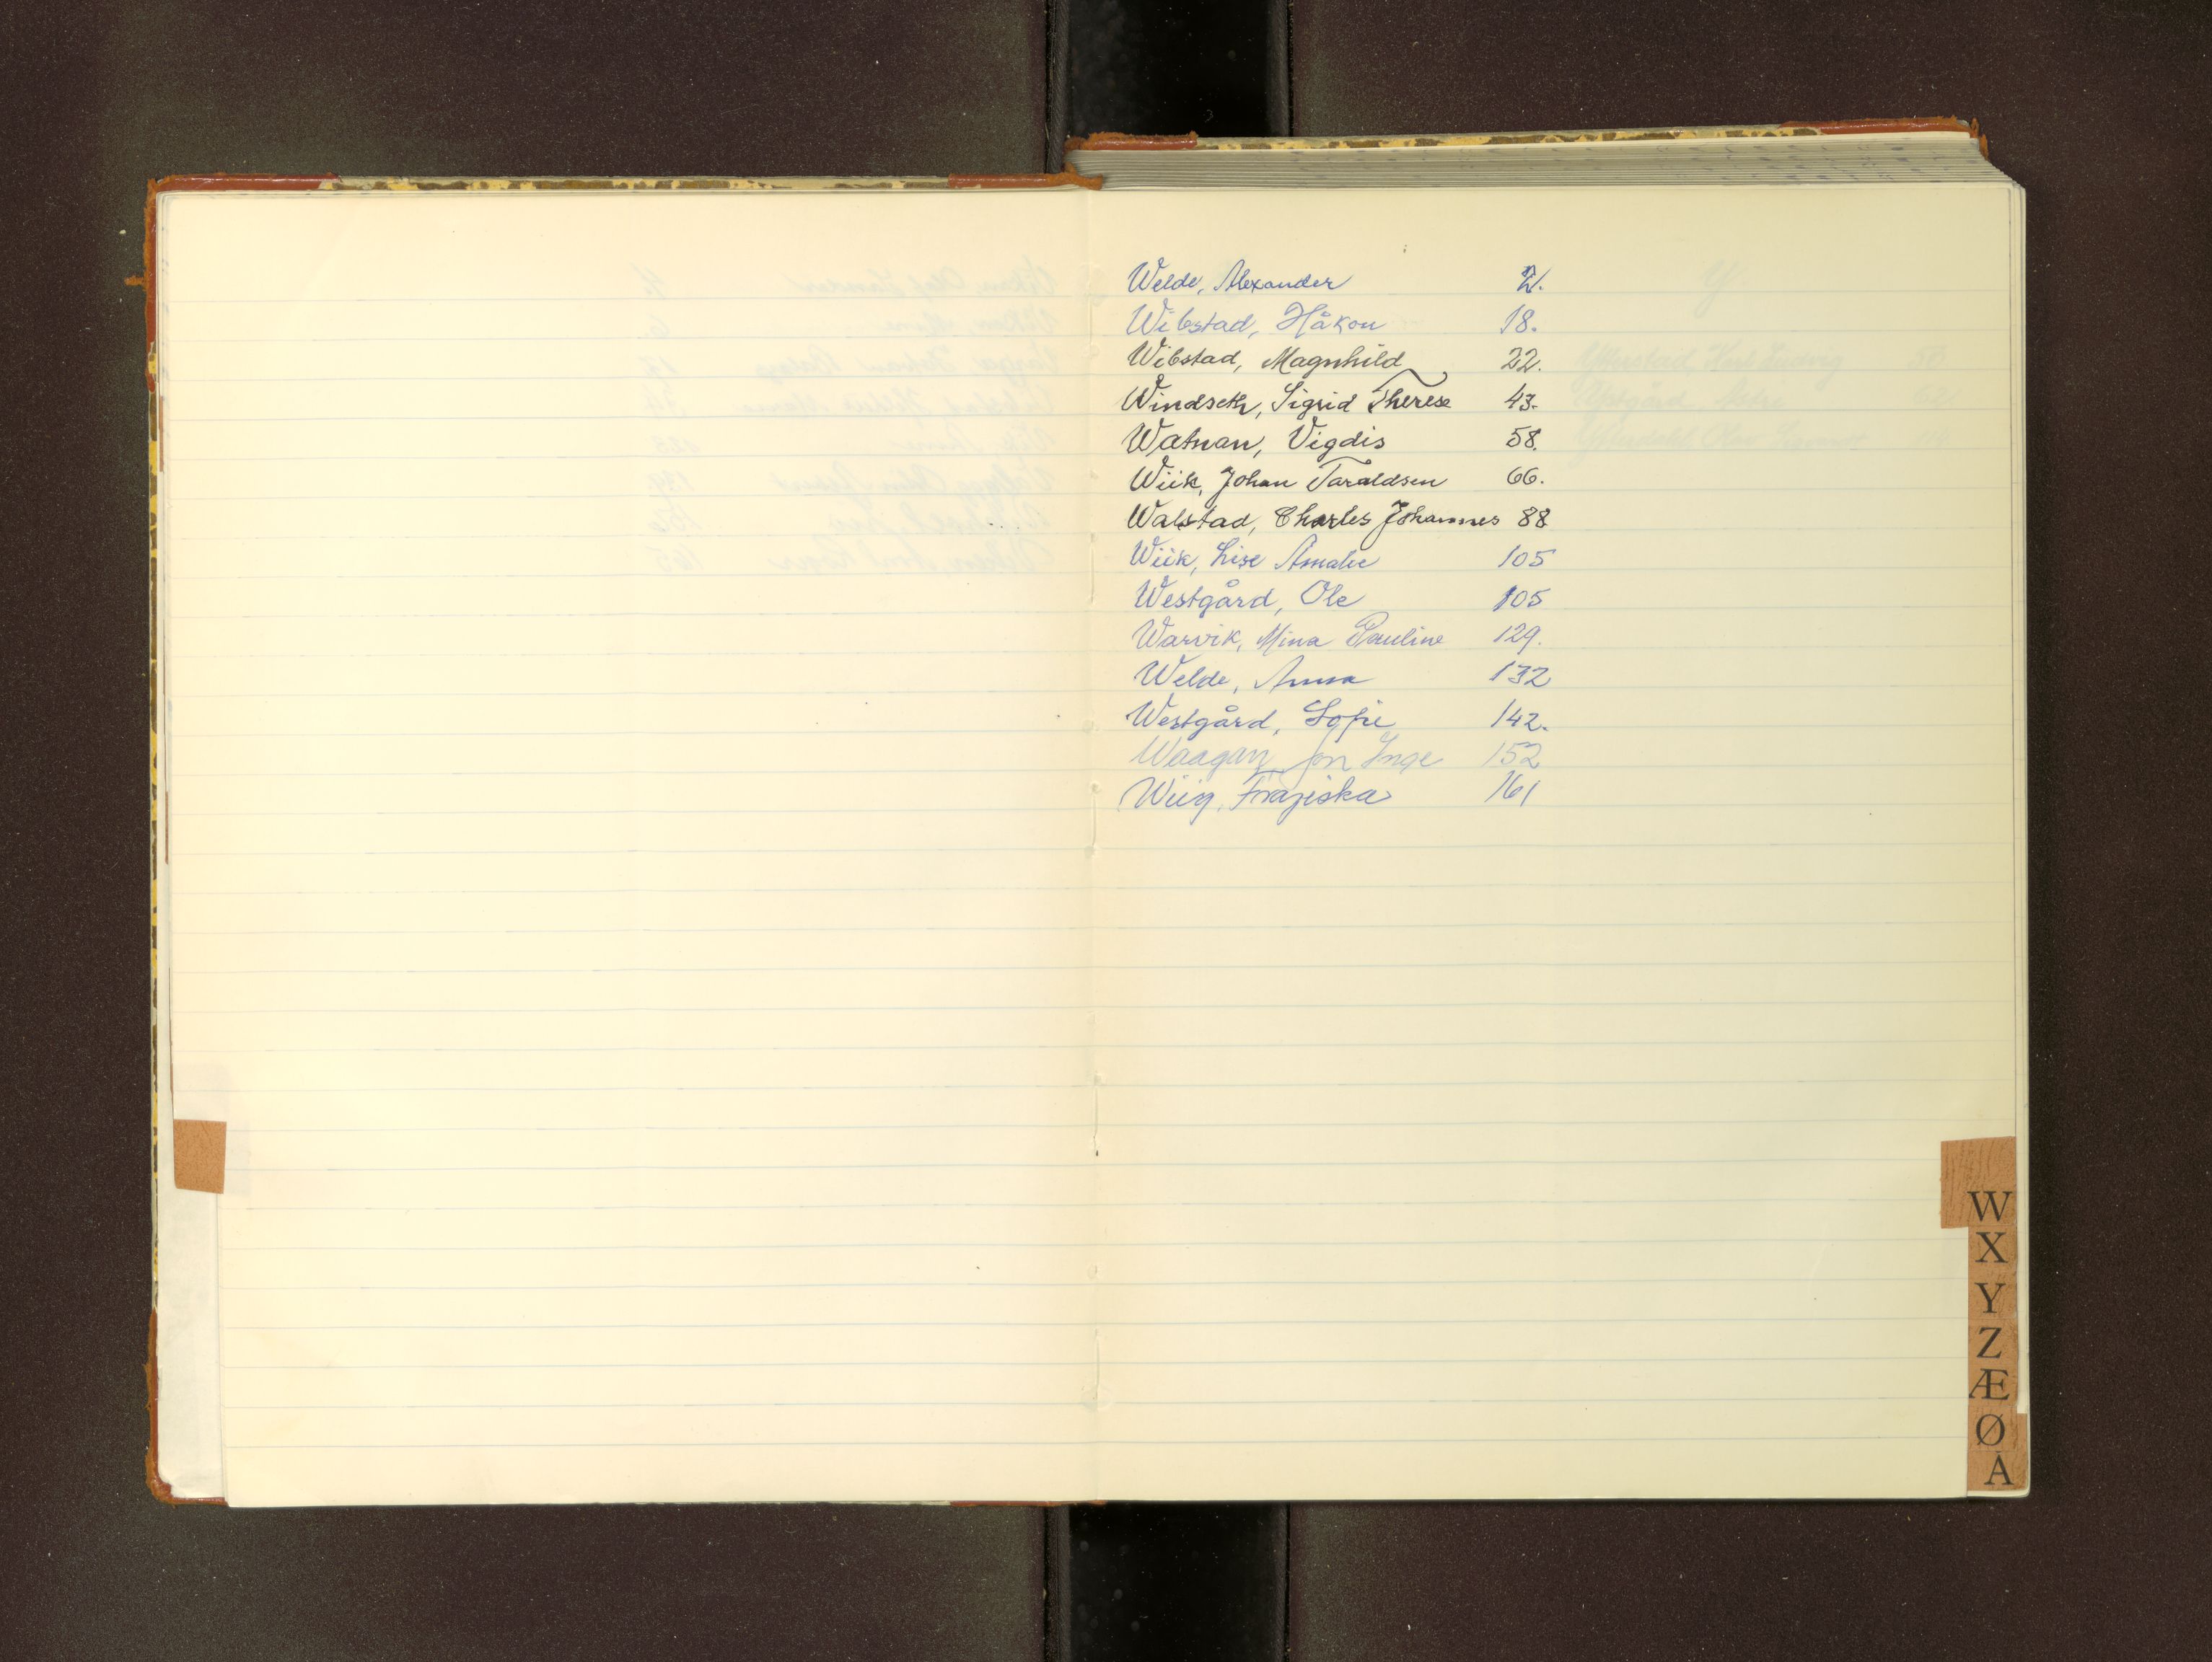 Welde, Alexander 2.
Wibstad, Håkon 18.
Wibstad, Magnhild 22.
Windseth, Sigrid Therese 43.
Watnan, Vigdis 58.
Wiik, Johan Taraldsen 66.
Walstad, Charles Johannes 88
Wiik, Lise Amalie 105
Westgård, Ole 105
Warvik, Mina Pauline 129.
Welde, Anna 132
Westgård, Sofie 142.
Waagan, Jon Inge 152
Wiig, Fraziska 161
W
X
Y
Z
Æ
Ø
Å